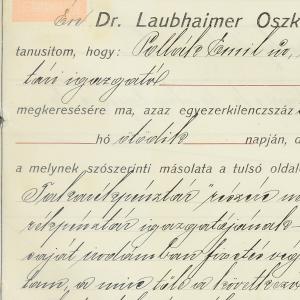 Én Dr. Laubhaimer Oszk
tanusitom, hogy: Pollák Emil ur,
tári igazgató
megkeresésére ma, azaz egyezerkilenczszáz
hó ötödik napján, d
a melynek szószerinti másolata a tulsó oldal
Takarékpénztár" részére
rékpénztár igazgatójának
saját irodámban fizetés vég
tam, a mire tőle a következő